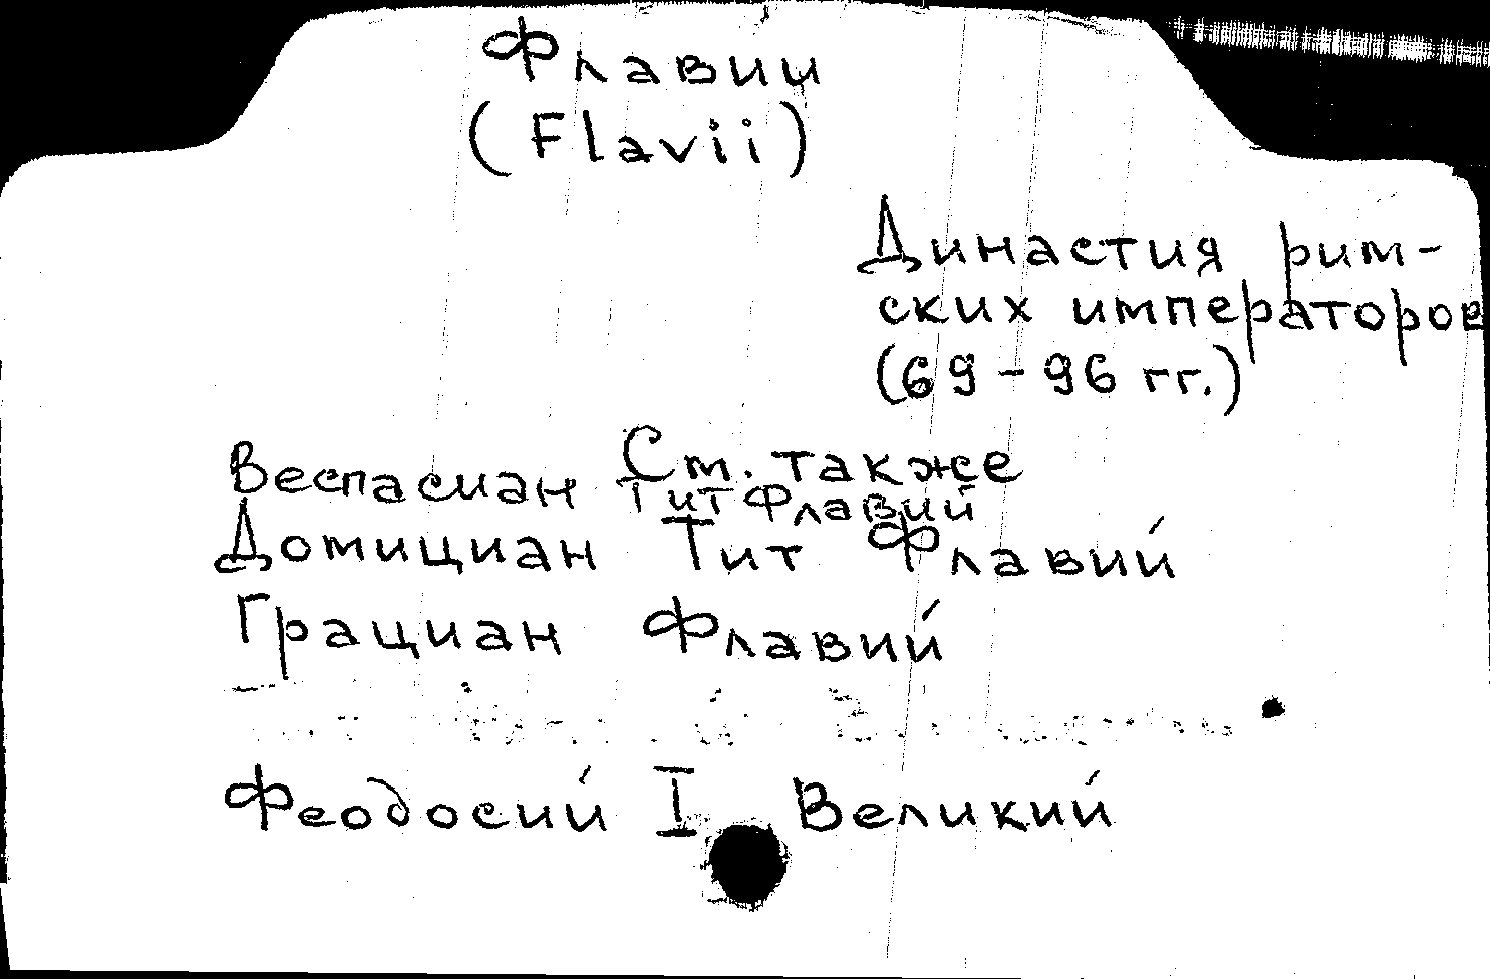 Флавии
(Flavii)
Династия рим-
ских императоров
(69-96 гг.)
См. также
Веспасиан Тит Флавий
Домициан Тит Флавий
Грациан Флавий
Феодосий I Великий